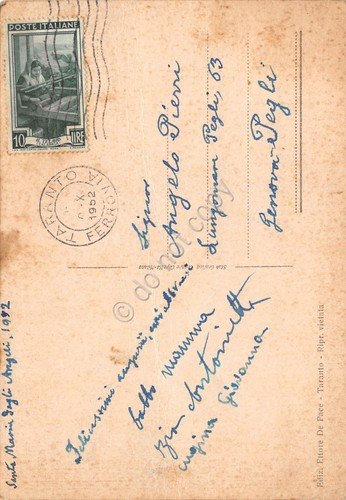 POSTE ITALIANE
10 LIRE
TARANTO FERROVIA
X
1952
Signor
Angelo Pierri
Lungomare Pegli, 63
Genova-Pegli
Santa Maria degli Angeli, 1952
Felicissimi auguri,
babbo mamma
zia Antonietta
cugina Giovanna
do not copy
Ediz. Ettore De Pace - Taranto - Ripr. vietata